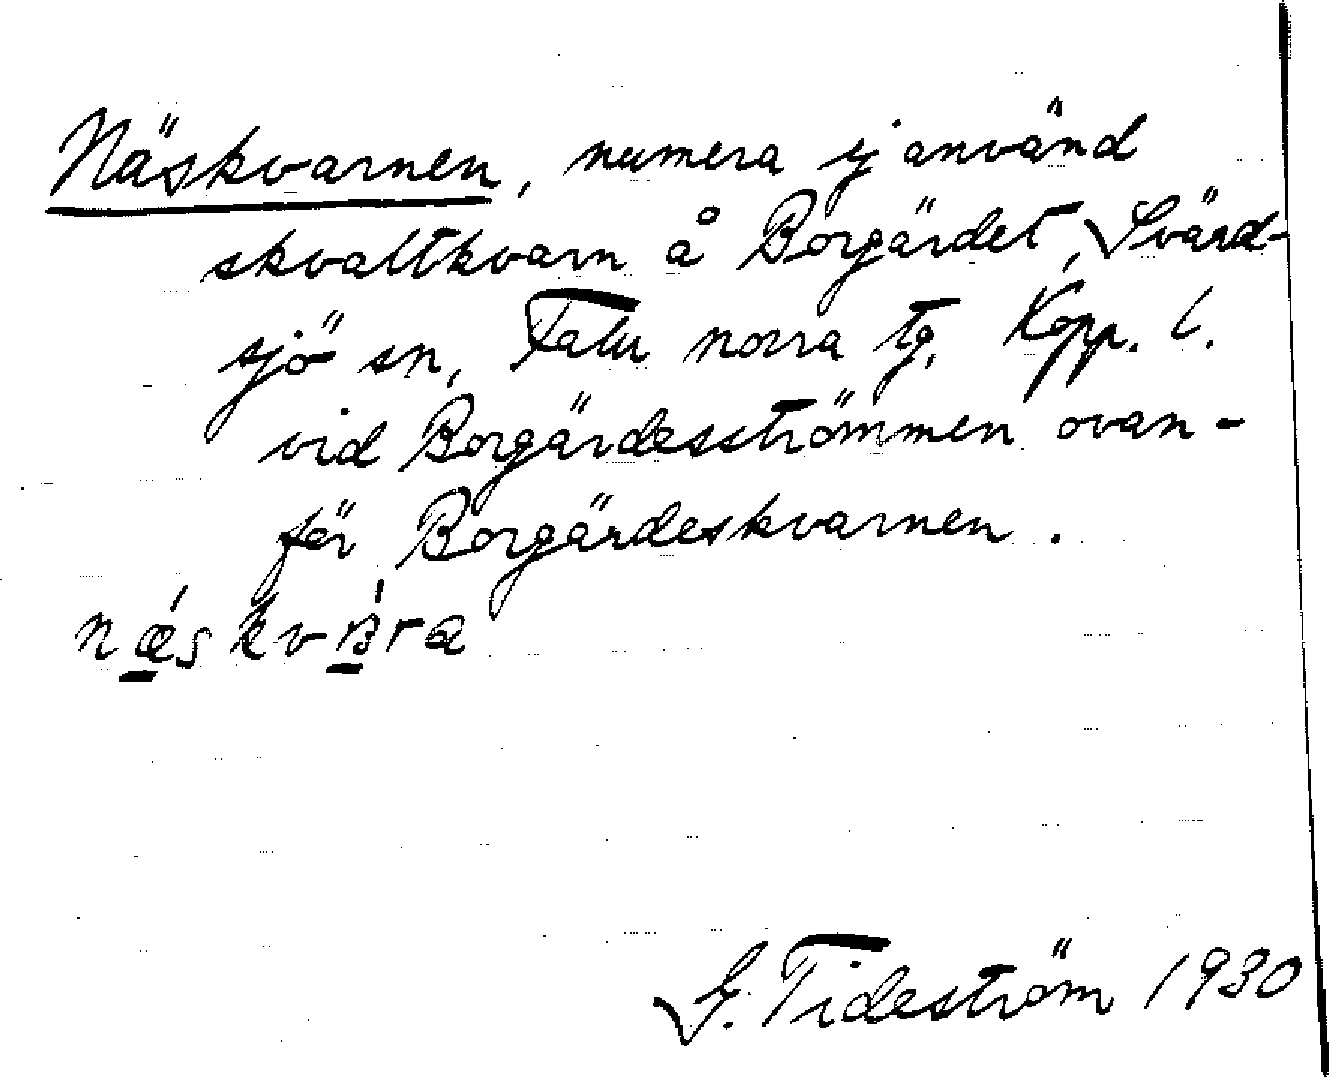 Näskvarnen, numera ej använd
skvaltkvarn å Borgärdet, Svärd-
sjö sn, Falu norra tg. Kopp. l.
vid Borgärdesströmmen ovan-
för Borgärdeskvarnen.
G. Tideström 1930